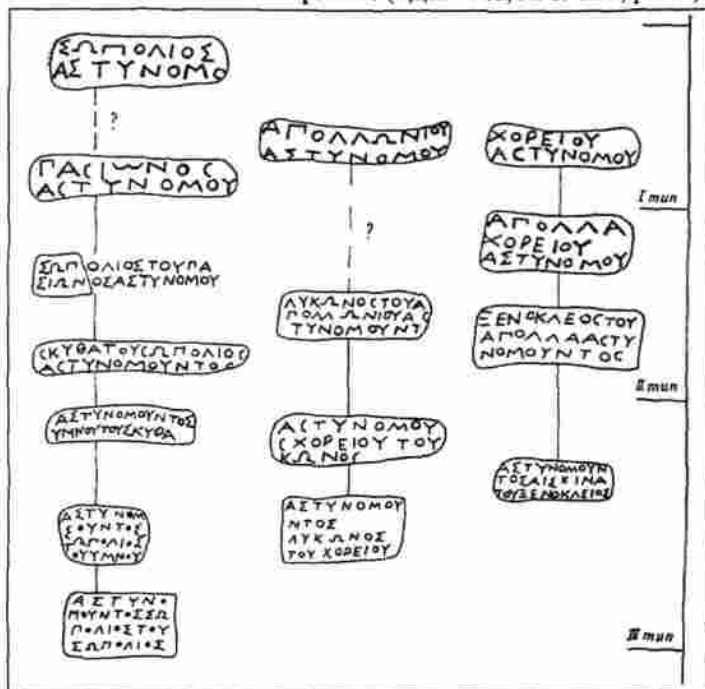 ΣΩΠΟΛΙΟΣ
ΑΣΤΥΝΟΜΟ
?
ΠΑСΙΩΝΟС
ΑСΤΥΝΟΜΟΥ
ΣΩΠΟΛΙΟΣΤΟΥΠΑ
ΣΙΩΝΟΣΑΣΤΥΝΟΜΟΥ
СΚΥΘΑΤΟΥСΩΠΟΛΙΟС
ΑСΤΥΝΟΜΟΥΝΤΟС
ΑΣΤΥΝΟΜΟΥΝΤΟΣ
ΥΜΝΟΥΤΟΥΣΚΥΘΑ
ΑΣΤΥΝΟΜ
ΣΟΥΝΤΟΣ
ΩΠΟΛΙΟΣ
ΟΥΥΜΝΟΥ
ΑΣΤΥΝΟ
ΜΟΥΝΤΟΣΣΩ
ΠΟΛΙΟΣΤΟΥ
ΣΩΠΟΛΙΟΣ
ΑΠΟΛΛΩΝΙΟΥ
ΑΣΤΥΝΟΜΟΥ
?
ΛΥΚΩΝΟСΤΟΥΑ
ΠΟΛΛΩΝΙΟΥΑС
ΤΥΝΟΜΟΥΝΤ
ΑСΤΥΝΟΜΟΥ
СΧΟΡΕΙΟΥ ΤΟΥ
ΚΩΝΟС
ΑΣΤΥΝΟΜΟΥ
ΝΤΟΣ
ΛΥΚΩΝΟΣ
ΤΟΥ ΧΟΡΕΙΟΥ
ΧΟΡΕΙΟΥ
ΑСΤΥΝΟΜΟΥ
ΑΠΟΛΛΑ
ΧΟΡΕΙΟΥ
ΑΣΤΥΝΟΜΟΥ
ΞΕΝΟΚΛΕΟСΤΟΥ
ΑΠΟΛΛΑΑСΤΥ
ΝΟΜΟΥΝΤΟС
ΑΣΤΥΝΟΜΟΥΝ
ΤΟΣΑΙΣΧΙΝΑ
ΤΟΥΞΕΝΟΚΛΕΙΟΣ
I тип
II тип
III тип